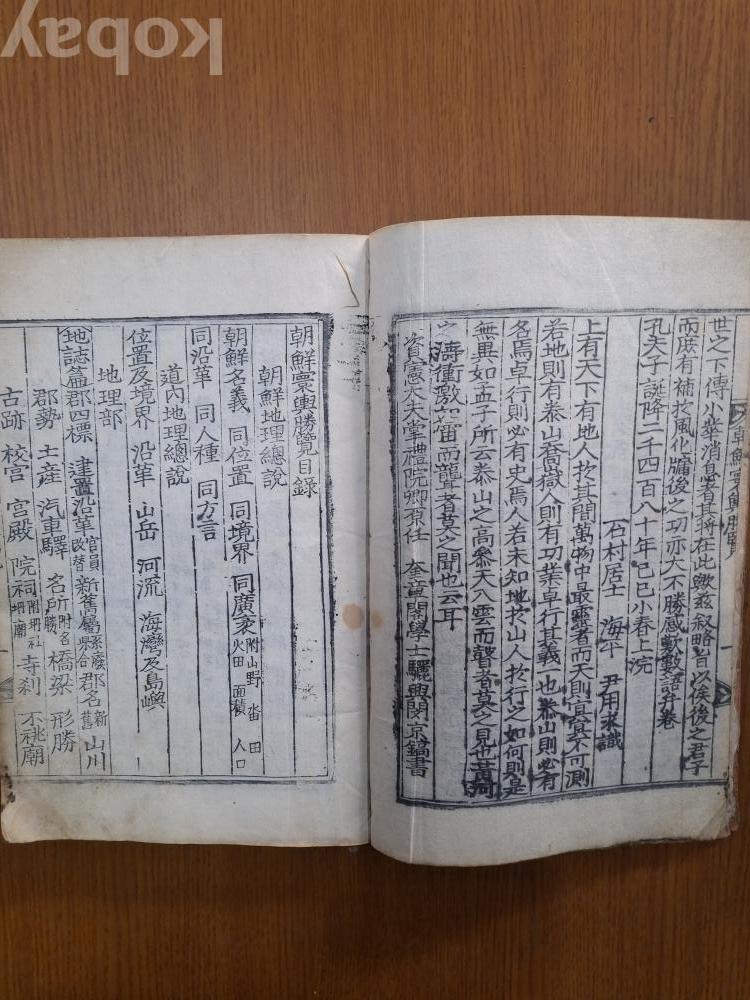 世之下傳小華消息者其將在此歟玆叙略旨以俟後之君子
而庶有補於風化牖後之功亦大不勝感歎數語弁卷
孔夫子誕降二千四百八十年己巳小春上浣
石村居士 海平 尹用求識
上有天下有地人於其間萬物中最靈者而天則冥冥不可測
若地則有泰山喬嶽人則有功業卓行其義一也泰山則必有
名焉卓行則必有史焉人若未知地於山人於行之如何則是
無異如孟子所云泰山之高參天入雲而瞽者莫之見也黃河
之濤衝激如雷而聾者莫之聞也云耳
資憲大夫掌禮院卿原任 奎章閣學士驪興閔京鎬書
朝鮮寰輿勝覽
朝鮮寰輿勝覽目錄
朝鮮地理總說
朝鮮名義 同位置 同境界 同廣袤 附山野 畓 田 火田 面積 人口
同沿革 同人種 同方言
道內地理總說
位置及境界 沿革 山岳 河流 海灣及島嶼
地理部
地誌篇 郡四標 建置沿革 官員改替 新舊屬縣 廢合 郡名 新舊 山川
郡勢 土産 汽車驛 名所 附名勝 橋梁 形勝
古跡 校宮 宮殿 院祠 附坍社坍廟 寺刹 不祧廟
kobay